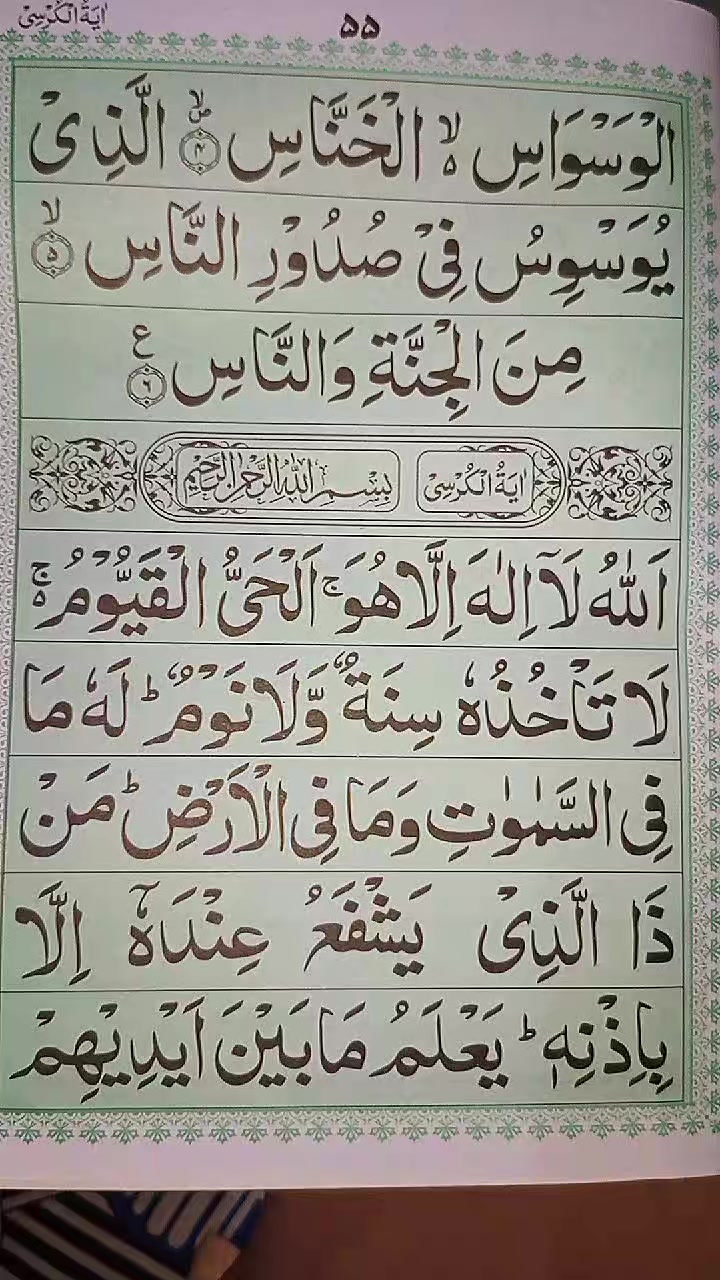 اٰيَةُ الْكُرْسِیْ
۵۵
الْوَسْوَاسِ ۙ۬ الْخَنَّاسِ ۪ۙ‏﴿۴﴾ الَّذِیْ
يُوَسْوِسُ فِیْ صُدُوْرِ النَّاسِ ۙ‏﴿۵﴾
مِنَ الْجِنَّةِ وَالنَّاسِ ‏﴿۶﴾ ع
اٰيَةُ الْكُرْسِیْ بِسْمِ اللّٰهِ الرَّحْمٰنِ الرَّحِيْمِ
اَللّٰهُ لَاۤ اِلٰهَ اِلَّا هُوَ ۚ اَلْحَیُّ الْقَيُّوْمُ ۚ۬
لَا تَاْخُذُهٗ سِنَةٌ وَّلَا نَوْمٌ ؕ لَهٗ مَا
فِی السَّمٰوٰتِ وَمَا فِی الْاَرْضِ ؕ مَنْ
ذَا الَّذِیْ يَشْفَعُ عِنْدَهٗۤ اِلَّا
بِاِذْنِهٖ ؕ يَعْلَمُ مَا بَيْنَ اَيْدِيْهِمْ